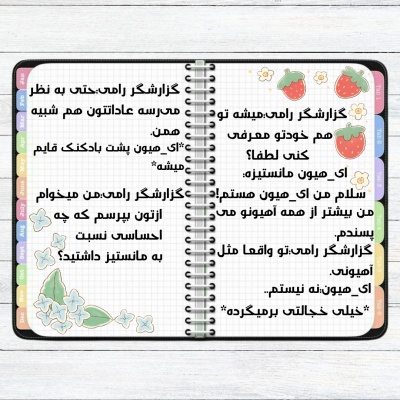 گزارشگر رامی:میشه تو
هم خودتو معرفی
کنی لطفا؟
ای_هیون مانستیزه:
سلام من ای_هیون هستم!
من بیشتر از همه آهیونو می
پسندم.
گزارشگر رامی:تو واقعا مثل
آهیونی.
ای_هیون:نه نیستم..
*خیلی خجالتی برمیگرده*
گزارشگر رامی:حتی به نظر
می‌رسه عاداتتون هم شبیه
همن.
*ای_هیون پشت بادکنک قایم
میشه*
گزارشگر رامی:من میخوام
ازتون بپرسم که چه
احساسی نسبت
به مانستیز داشتید؟